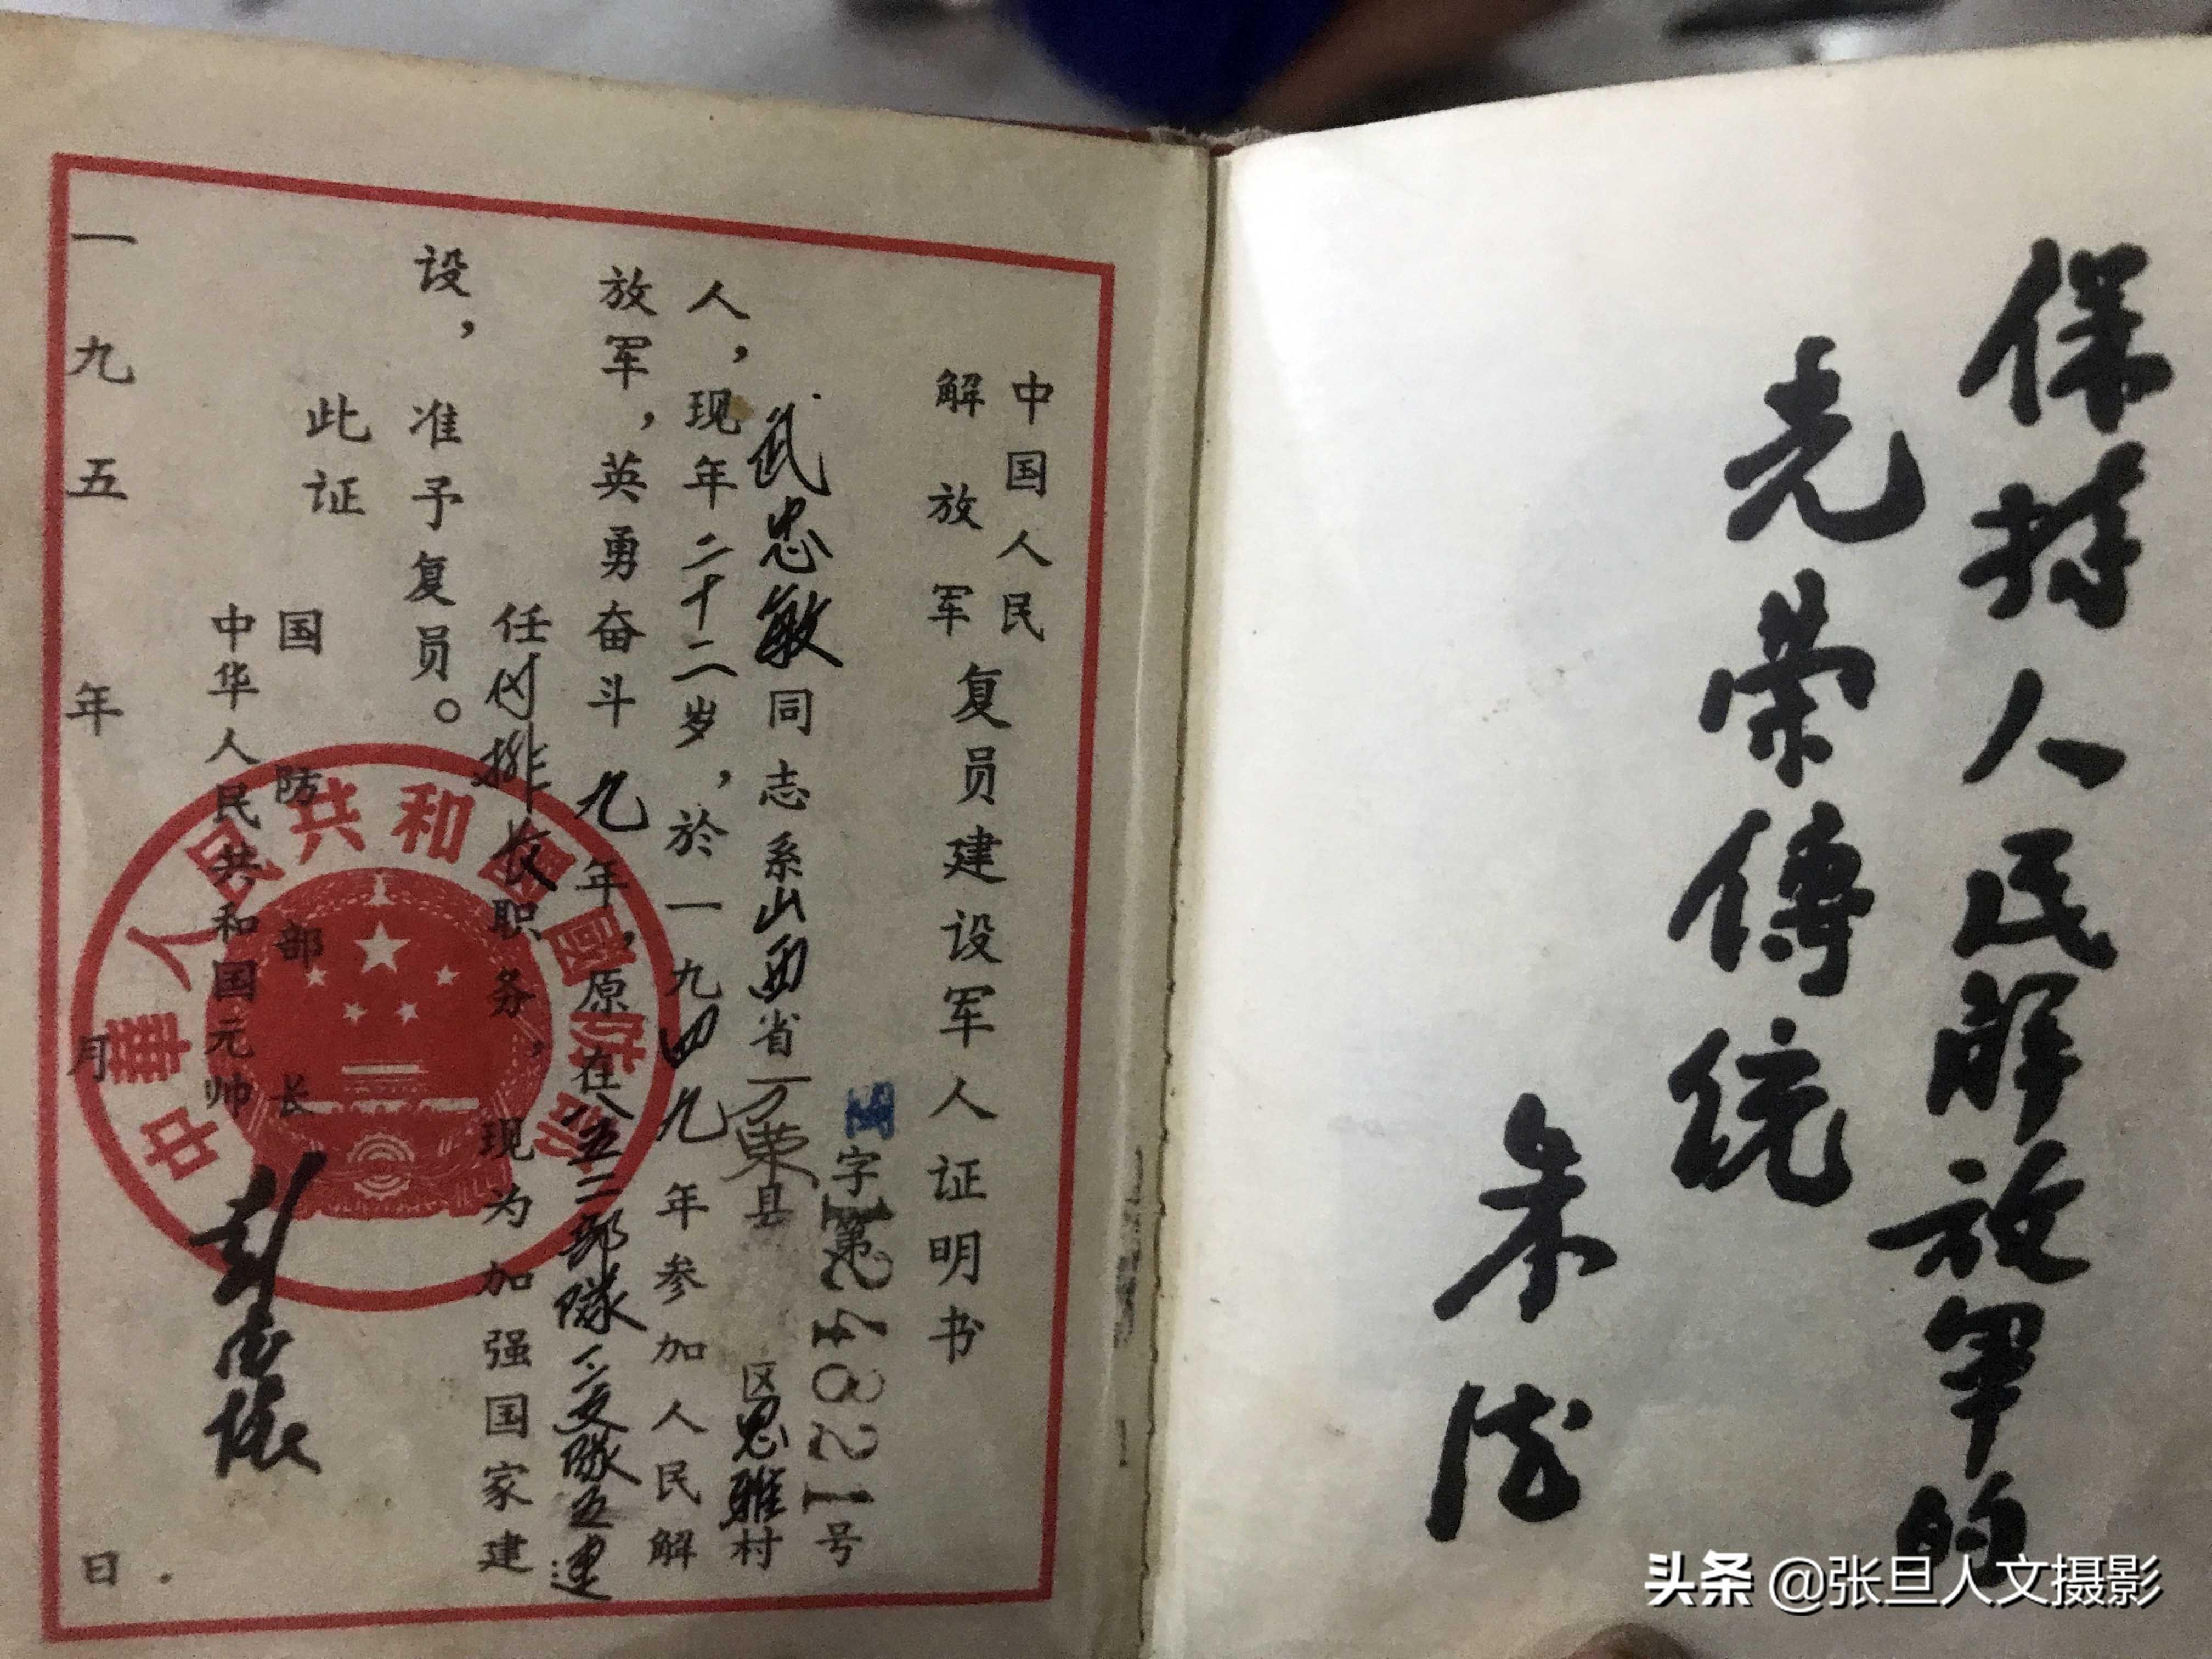 保持人民解放军的
光荣傳统
朱德
中国人民
解放军
复员建设军人证明书
字第124821号
武忠敏同志系山西省万荣县 区思雅村
人，现年二十二岁，於一九四九年参加人民解
放军，英勇奋斗九年，原在八五二部隊一支隊五连
任付排长职务，现为加强国家建
设，准予复员。
此证
国防部长
中华人民共和国元帅
彭德怀
一九五 年 月 日
中華人民共和國國防部
头条 @张旦人文摄影